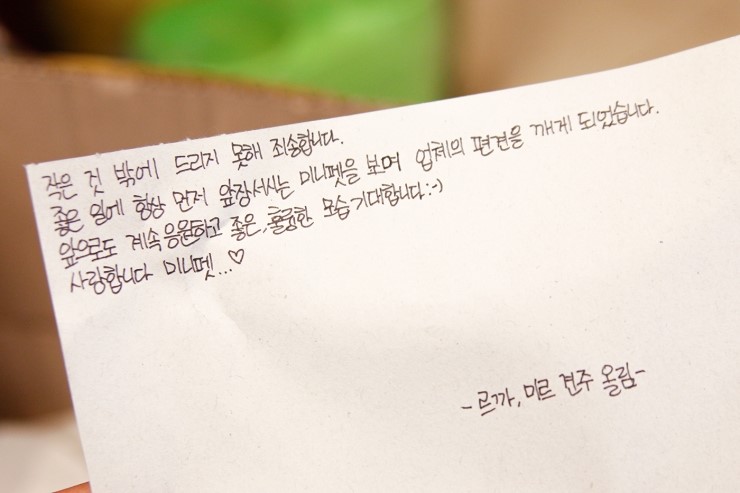 작은 것 밖에 드리지 못해 죄송합니다.
좋은 일에 항상 먼저 앞장서시는 미니펫을 보며 업체의 편견을 깨게 되었습니다.
앞으로도 계속 응원하고 좋은, 훌륭한 모습 기대합니다:-)
사랑합니다 미니펫...♡
- 르까, 미르 견주 올림-